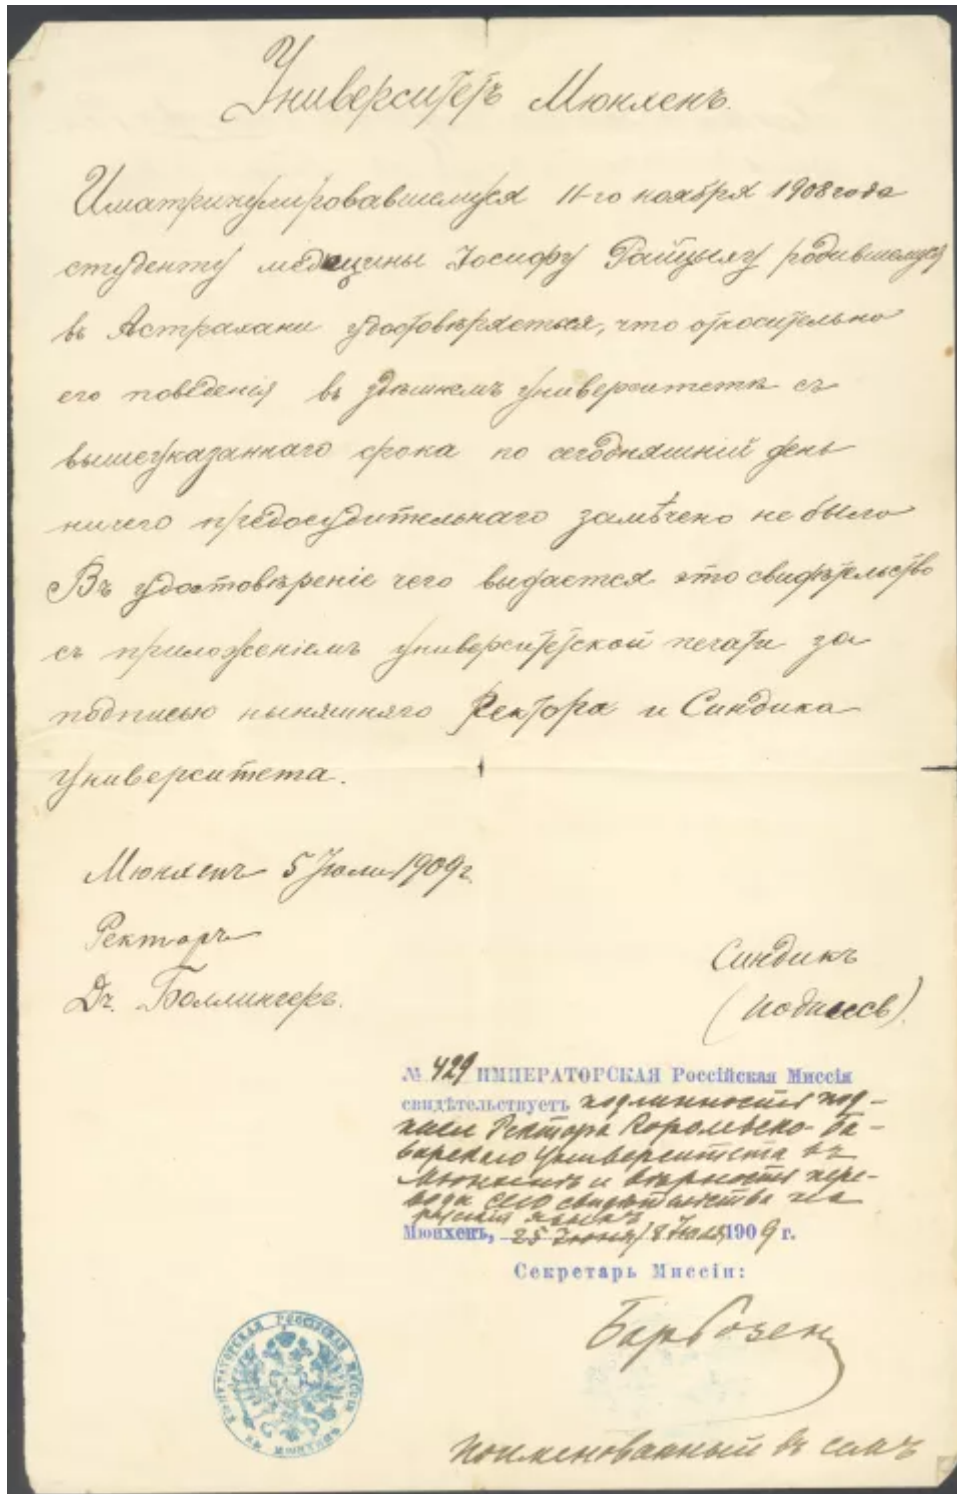 Университетъ Мюнхенъ.
Иматрикулировавшемуся 11-го ноября 1908 года
студенту медицины Іосифу Райцылу родившемуся
въ Астрахани удостовѣряется, что относительно
его поведенія въ здѣшнемъ университетѣ съ
вышеуказаннаго срока по сегодняшній день
ничего предосудительнаго замѣчено не было
Въ удостовѣреніе чего выдается это свидѣтельство
съ приложеніемъ университетской печати за
подписью нынѣшняго Ректора и Синдика
Университета.
Мюнхенъ 5 Іюли 1909 г.
Ректоръ
Дч. Боллингеръ.
Синдикъ
(подпись).
№ 429 ИМПЕРАТОРСКАЯ Россійская Миссія
свидѣтельствуетъ подлинность под-
писи Ректора Королевско-Ба-
варскаго Университета въ
Мюнхенѣ и вѣрность пере-
вода сего свидѣтельства на
русскій языкъ
Мюнхенъ, 25 Іюня / 8 Іюля 1909 г.
Секретарь Миссіи:
ИМПЕРАТОРСКАЯ РОССІЙСКАЯ МИССІЯ
ВЪ МЮНХЕНѢ
поименованный въ семъ